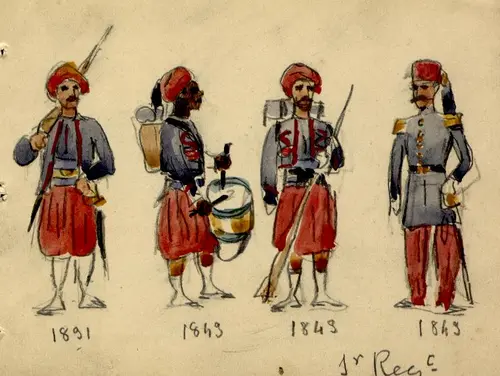 1891 1849 1849 1849
1r Regt